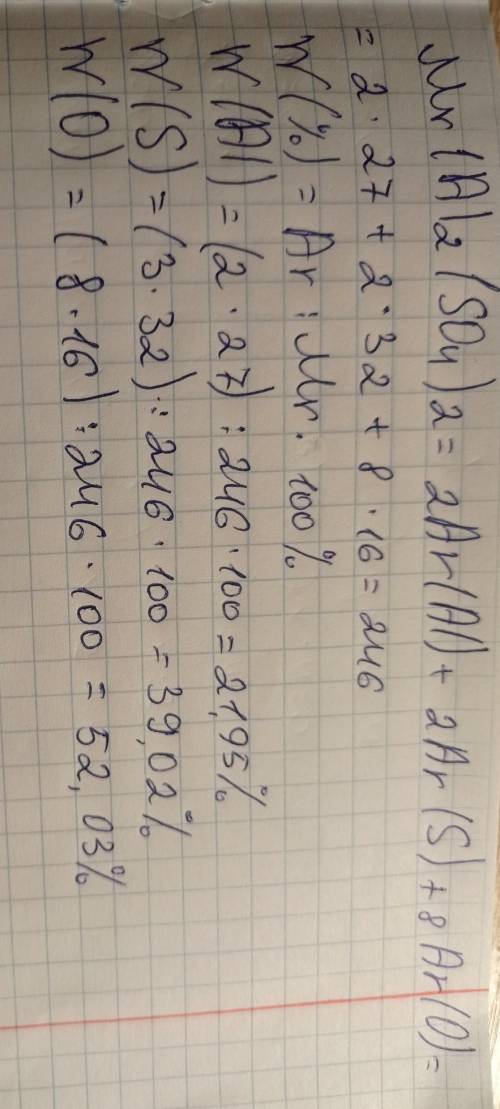 Mr(Al)2(SO4)2 = 2Ar(Al) + 2Ar(S) + 8Ar(O) =
= 2·27 + 2·32 + 8·16 = 246
W(%) = Ar : Mr · 100%
W(Al) = (2·27) : 246 · 100 = 21,95%
W(S) = (3·32) : 246 · 100 = 39,02%
W(O) = (8·16) : 246 · 100 = 52,03%